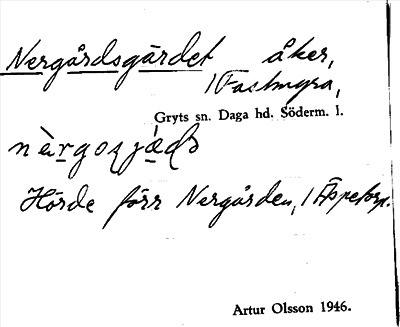 Nergårdsgärdet åker,
/ Fastmyra,
Gryts sn. Daga hd. Söderm. l.
Hörde förr Nergården, / Äppetorp.
Artur Olsson 1946.